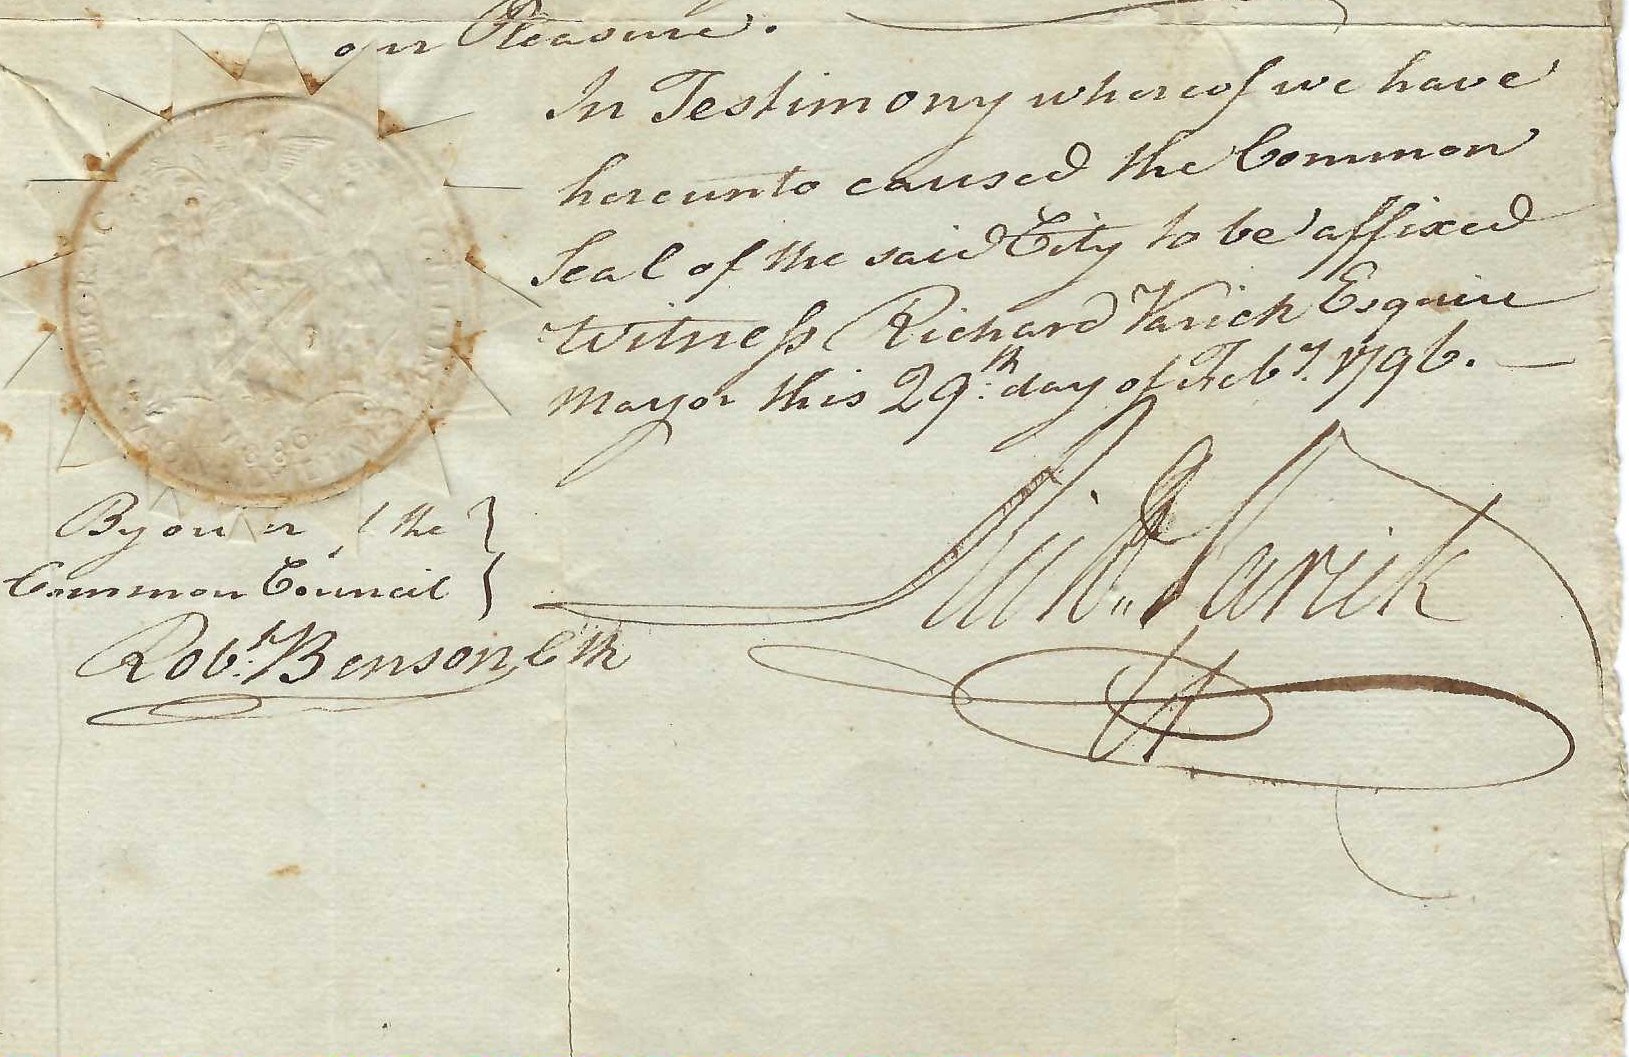 our Pleasure.
In Testimony whereof we have
hereunto caused the Common
Seal of the said City to be affixed
Witness Richard Varick Esquire
Mayor this 29th. day of Feby. 1796. —
By or er f the
Common Council
Richd. Varick
Robt. Benson, Clk